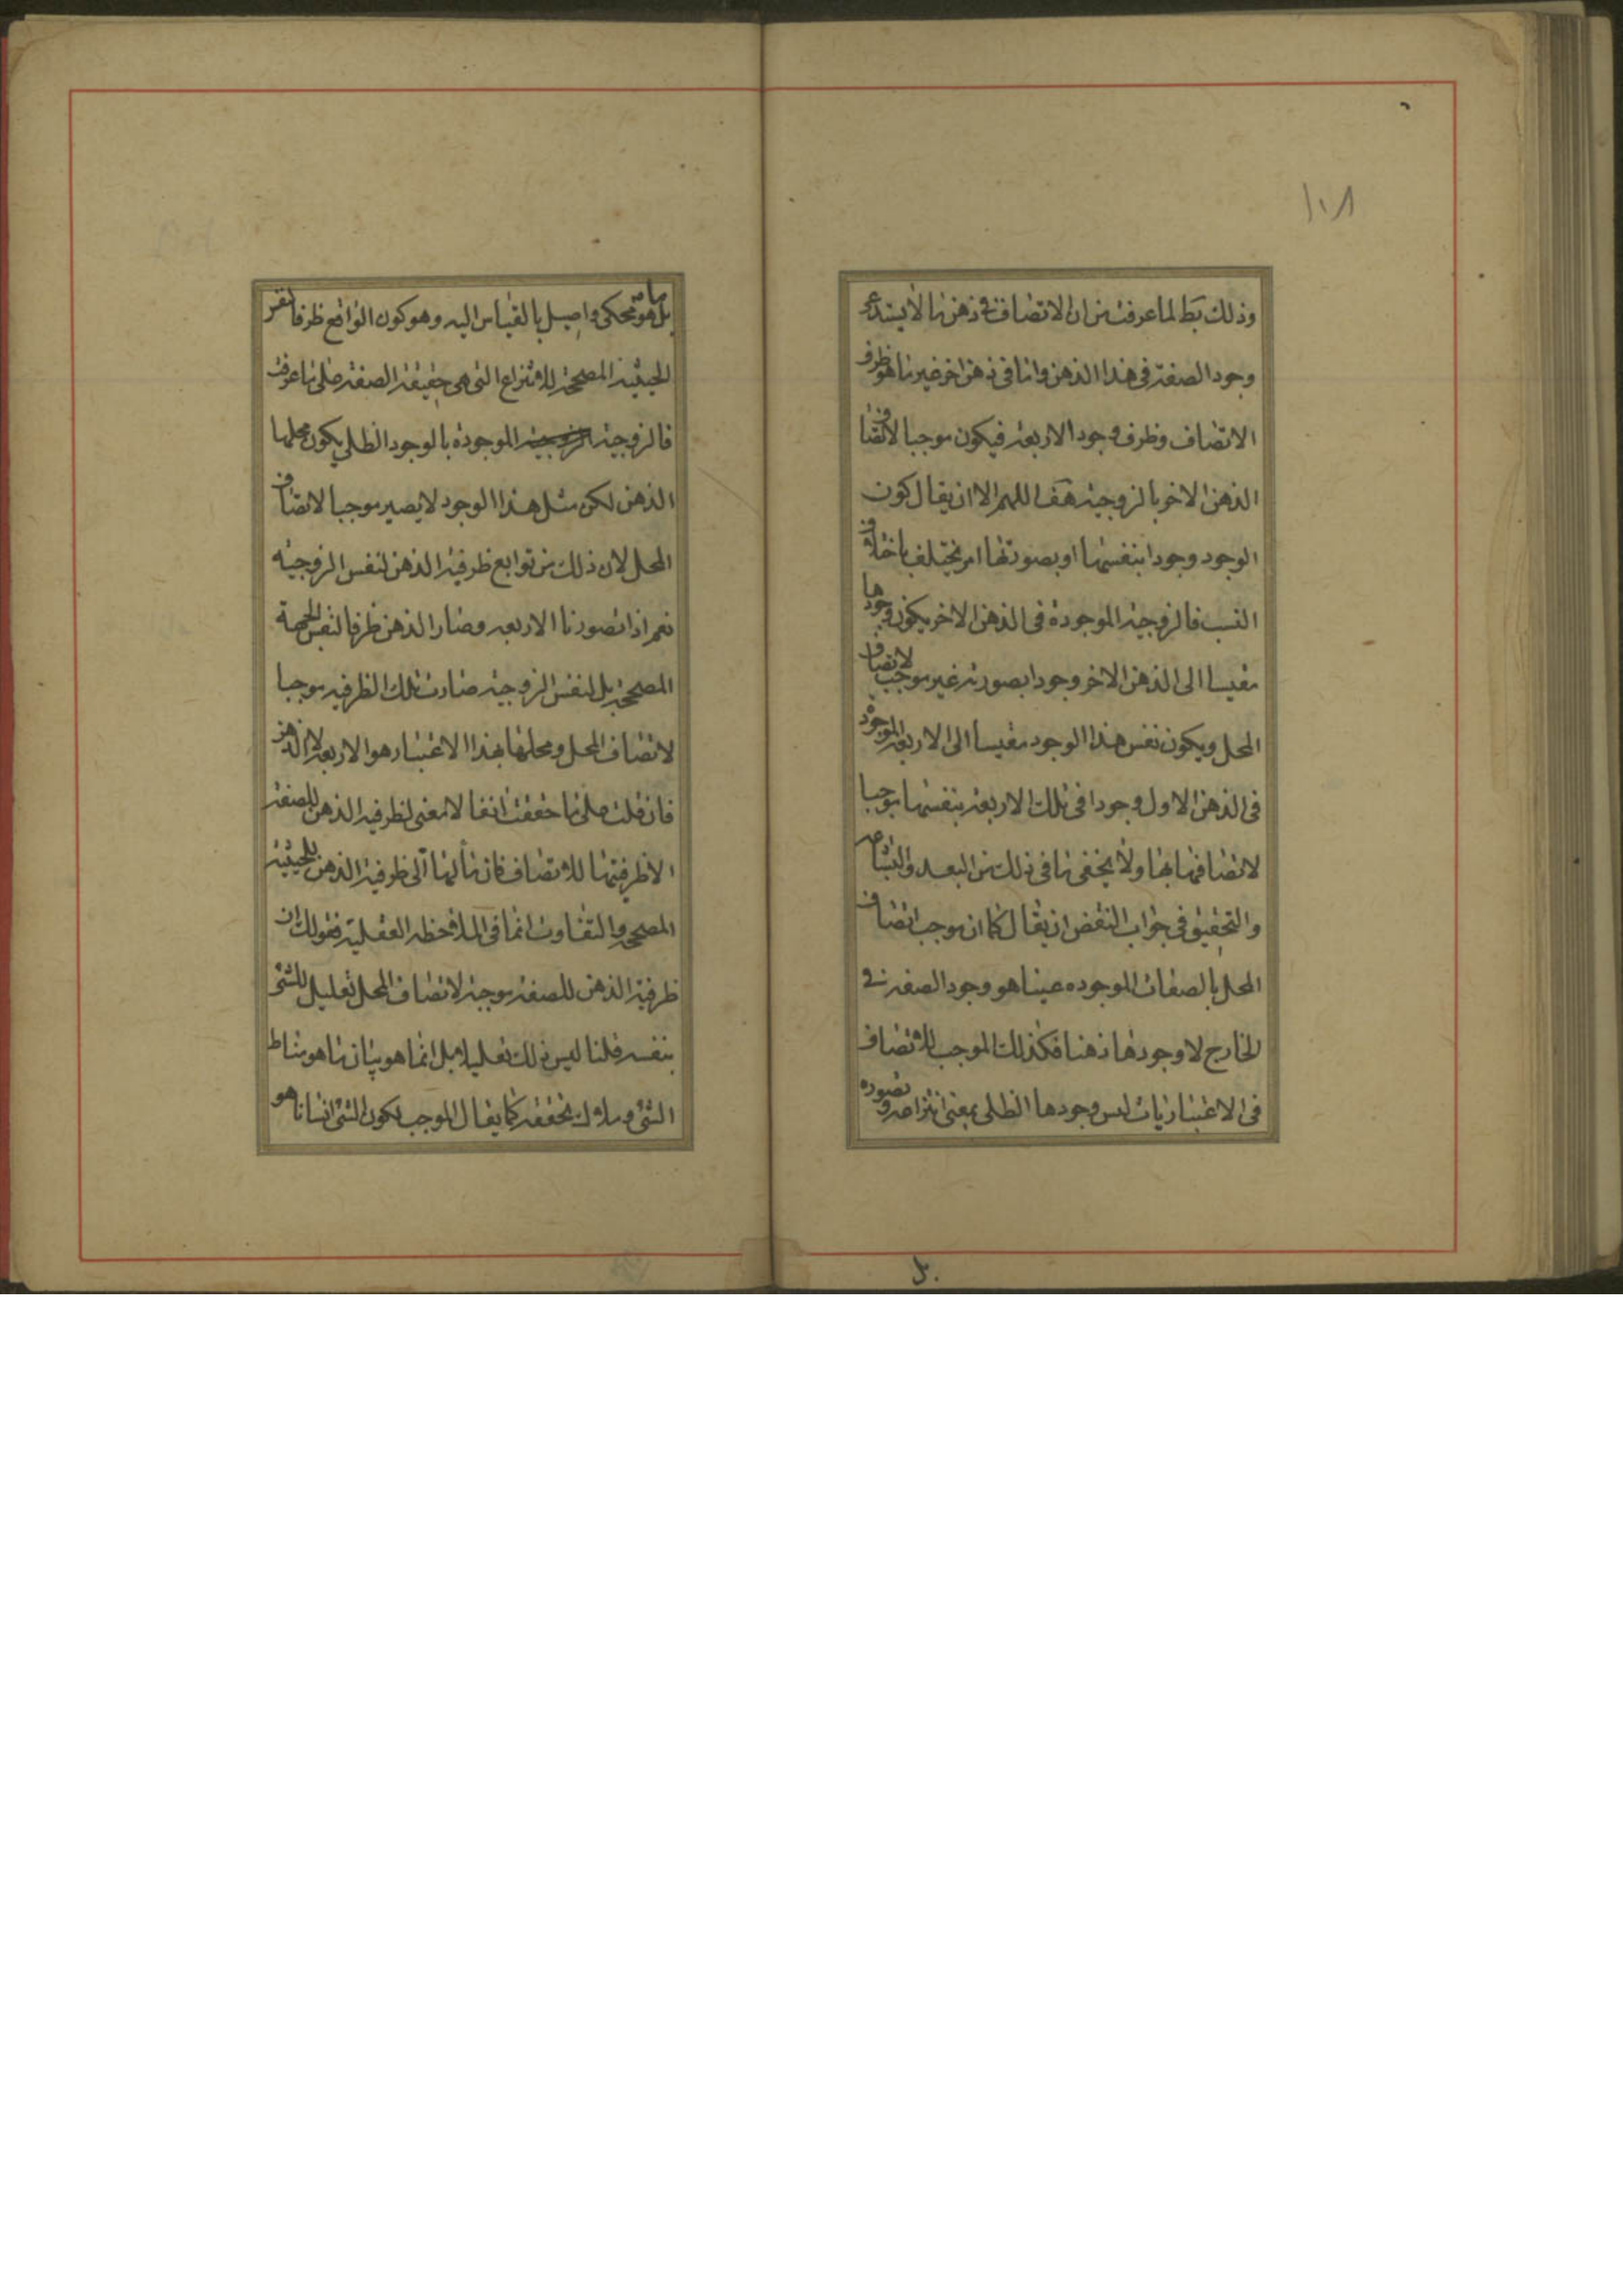 ١٠٨
وذلك بط لما عرفت من ان الاتصاف في ذهن ما لا يستدعى
وجود الصفة في هذا الذهن واما في ذهن اخر غير ما هو ظرف
الاتصاف وظرف وجود الاربعة فيكون موجبا لاتصاف
الذهن الاخر بالزوجية هف اللهم الا ان يقال كون
الوجود وجودا بنفسها او بصورتها امر يختلف باختلاف
النسب فالزوجية الموجودة في الذهن الاخر يكون وجودها
مقيسا الى الذهن الاخر وجودا بصورته غير موجب لاتصاف
المحل ويكون نفس هذا الوجود مقيسا الى الاربعة الموجودة
في الذهن الاول وجودا في تلك الاربعة بنفسها موجبا
لاتصافها بها ولا يخفى ما في ذلك من البعد والبشاعة
والتحقيق في جواب النقض ان يقال كما ان موجب اتصاف
المحل بالصفات الموجوده عينا هو وجود الصفه في
الخارج لا وجودها ذهنا فكذلك الموجب للاتصاف
في الاعتباريات ليس وجودها الظلي بمعنى انتزاعه وتصوره
بل
بل ما هو محكى واصيل بالقياس اليه وهو كون الواقع ظرفا لنفس
الحيثية المصححة للانتزاع التي هي حقيقة الصفة على ما عرفت
فالزوجية الموجودة بالوجود الظلي يكون محلها
الذهن لكن مثل هذا الوجود لا يصير موجبا لاتصاف
المحل لان ذلك من توابع ظرفية الذهن لنفس الزوجية
نعم اذا تصورنا الاربعه وصار الذهن ظرفا لنفس الجهة
المصححة بل لنفس الزوجية صارت تلك الظرفيه موجبا
لاتصاف المحل ومحلها بهذا الاعتبار هو الاربعة لا الذهن
فان قلت على ما حققت انفا لا معنى لظرفية الذهن للصفة
الا ظرفيتها للاتصاف فان مآلها الى ظرفية الذهن للحيثية
المصححة والتفاوت انما في الملاحظة العقلية فقولك ان
ظرفية الذهن للصفة موجبة لاتصاف المحل تعليل للشئ
بنفسه قلنا ليس ذلك تعليلا بل انما هو بيان ما هو مناط
الشئ وملاك تحققه كما يقال الموجب لكون الشئ انسانا هو